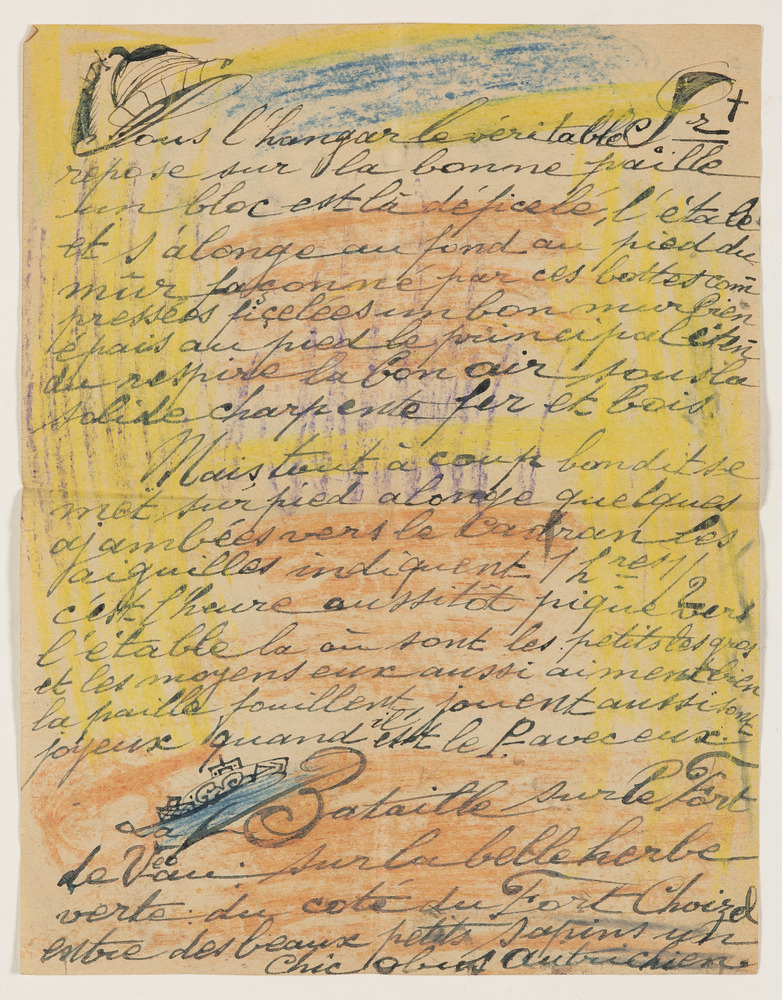 Sous l'hangar le véritable Pr
repose sur la bonne paille
un bloc est là déficelé, l'étale
et s'alonge au fond au pied du
mûr façonné par ces bottes com
pressées ficelées un bon mur bien
épais au pied le principal éten
du respire la bon air sous la
solide charpente fer et bois.
Mais tout à coup bondit se
met sur pied alonge quelques
ajambées vers le cadran les
aiguilles indiquent 7 hres 1/2
c'est l'heure aussitôt pique vers
l'étable la où sont les petits les gros
et les moyens eux aussi aiment bien
la paille fouillent jouent aussi sont
joyeux quand il est le P. avec eux.
La Bataille sur le Fort
de Vau sur la belle herbe
verte du coté du Fort Choizel
entre des beaux petits sapins un
chic obus autrichien.